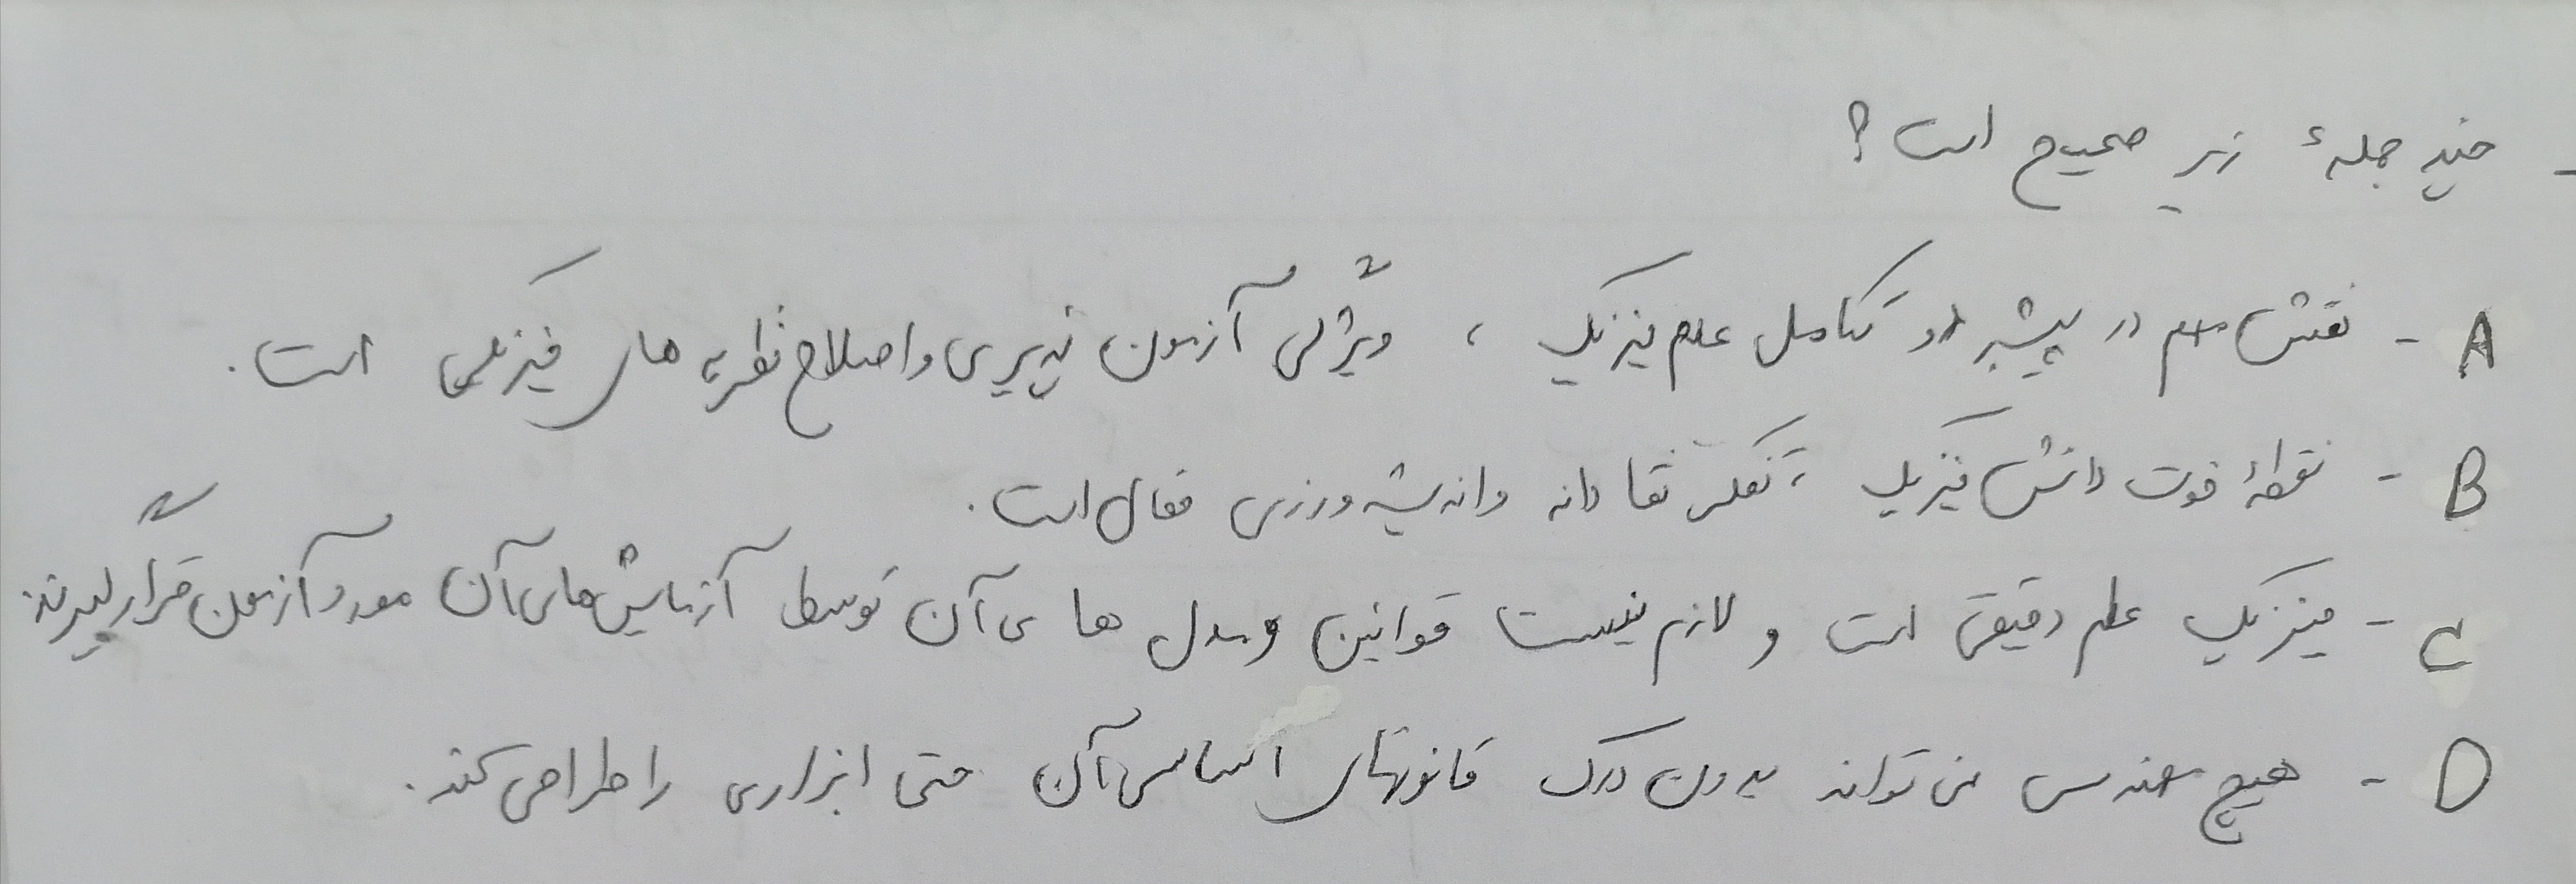 - چند جملهٔ زیر صحیح است ؟
A - نقش مهم در پیشبرد و تکامل علم فیزیک ، ویژگی آزمون پذیری و اصلاح نظریه های فیزیکی است .
B - نقطهٔ قوت دانش فیزیک ، تفکر نقادانه و اندیشه ورزی فعال است .
C - فیزیک علم دقیقی است و لازم نیست قوانین و مدل های آن توسط آزمایش های آن مورد آزمون قرار گیرند
D - هیچ مهندسی نمی تواند بدون درک قانونهای اساسی آن حتی ابزاری را طراحی کند .